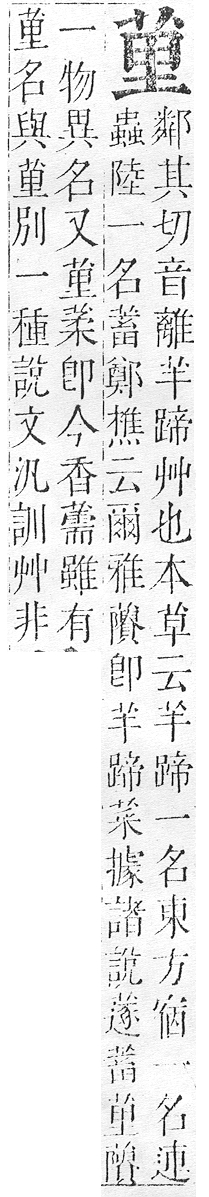 荲
鄰其切音離羊蹄艸也本草云羊蹄一名東方宿一名連
蟲陸一名蓄鄭樵云爾雅藬即羊蹄菜據諸說蓫蓄荲藬
一物異名又荲葇即今香薷雖有
荲名與荲別一種說文汎訓艸非